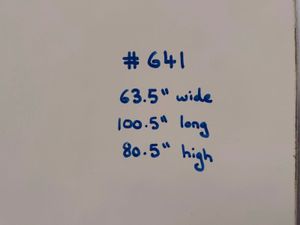 # 641
63.5" wide
100.5" long
80.5" high